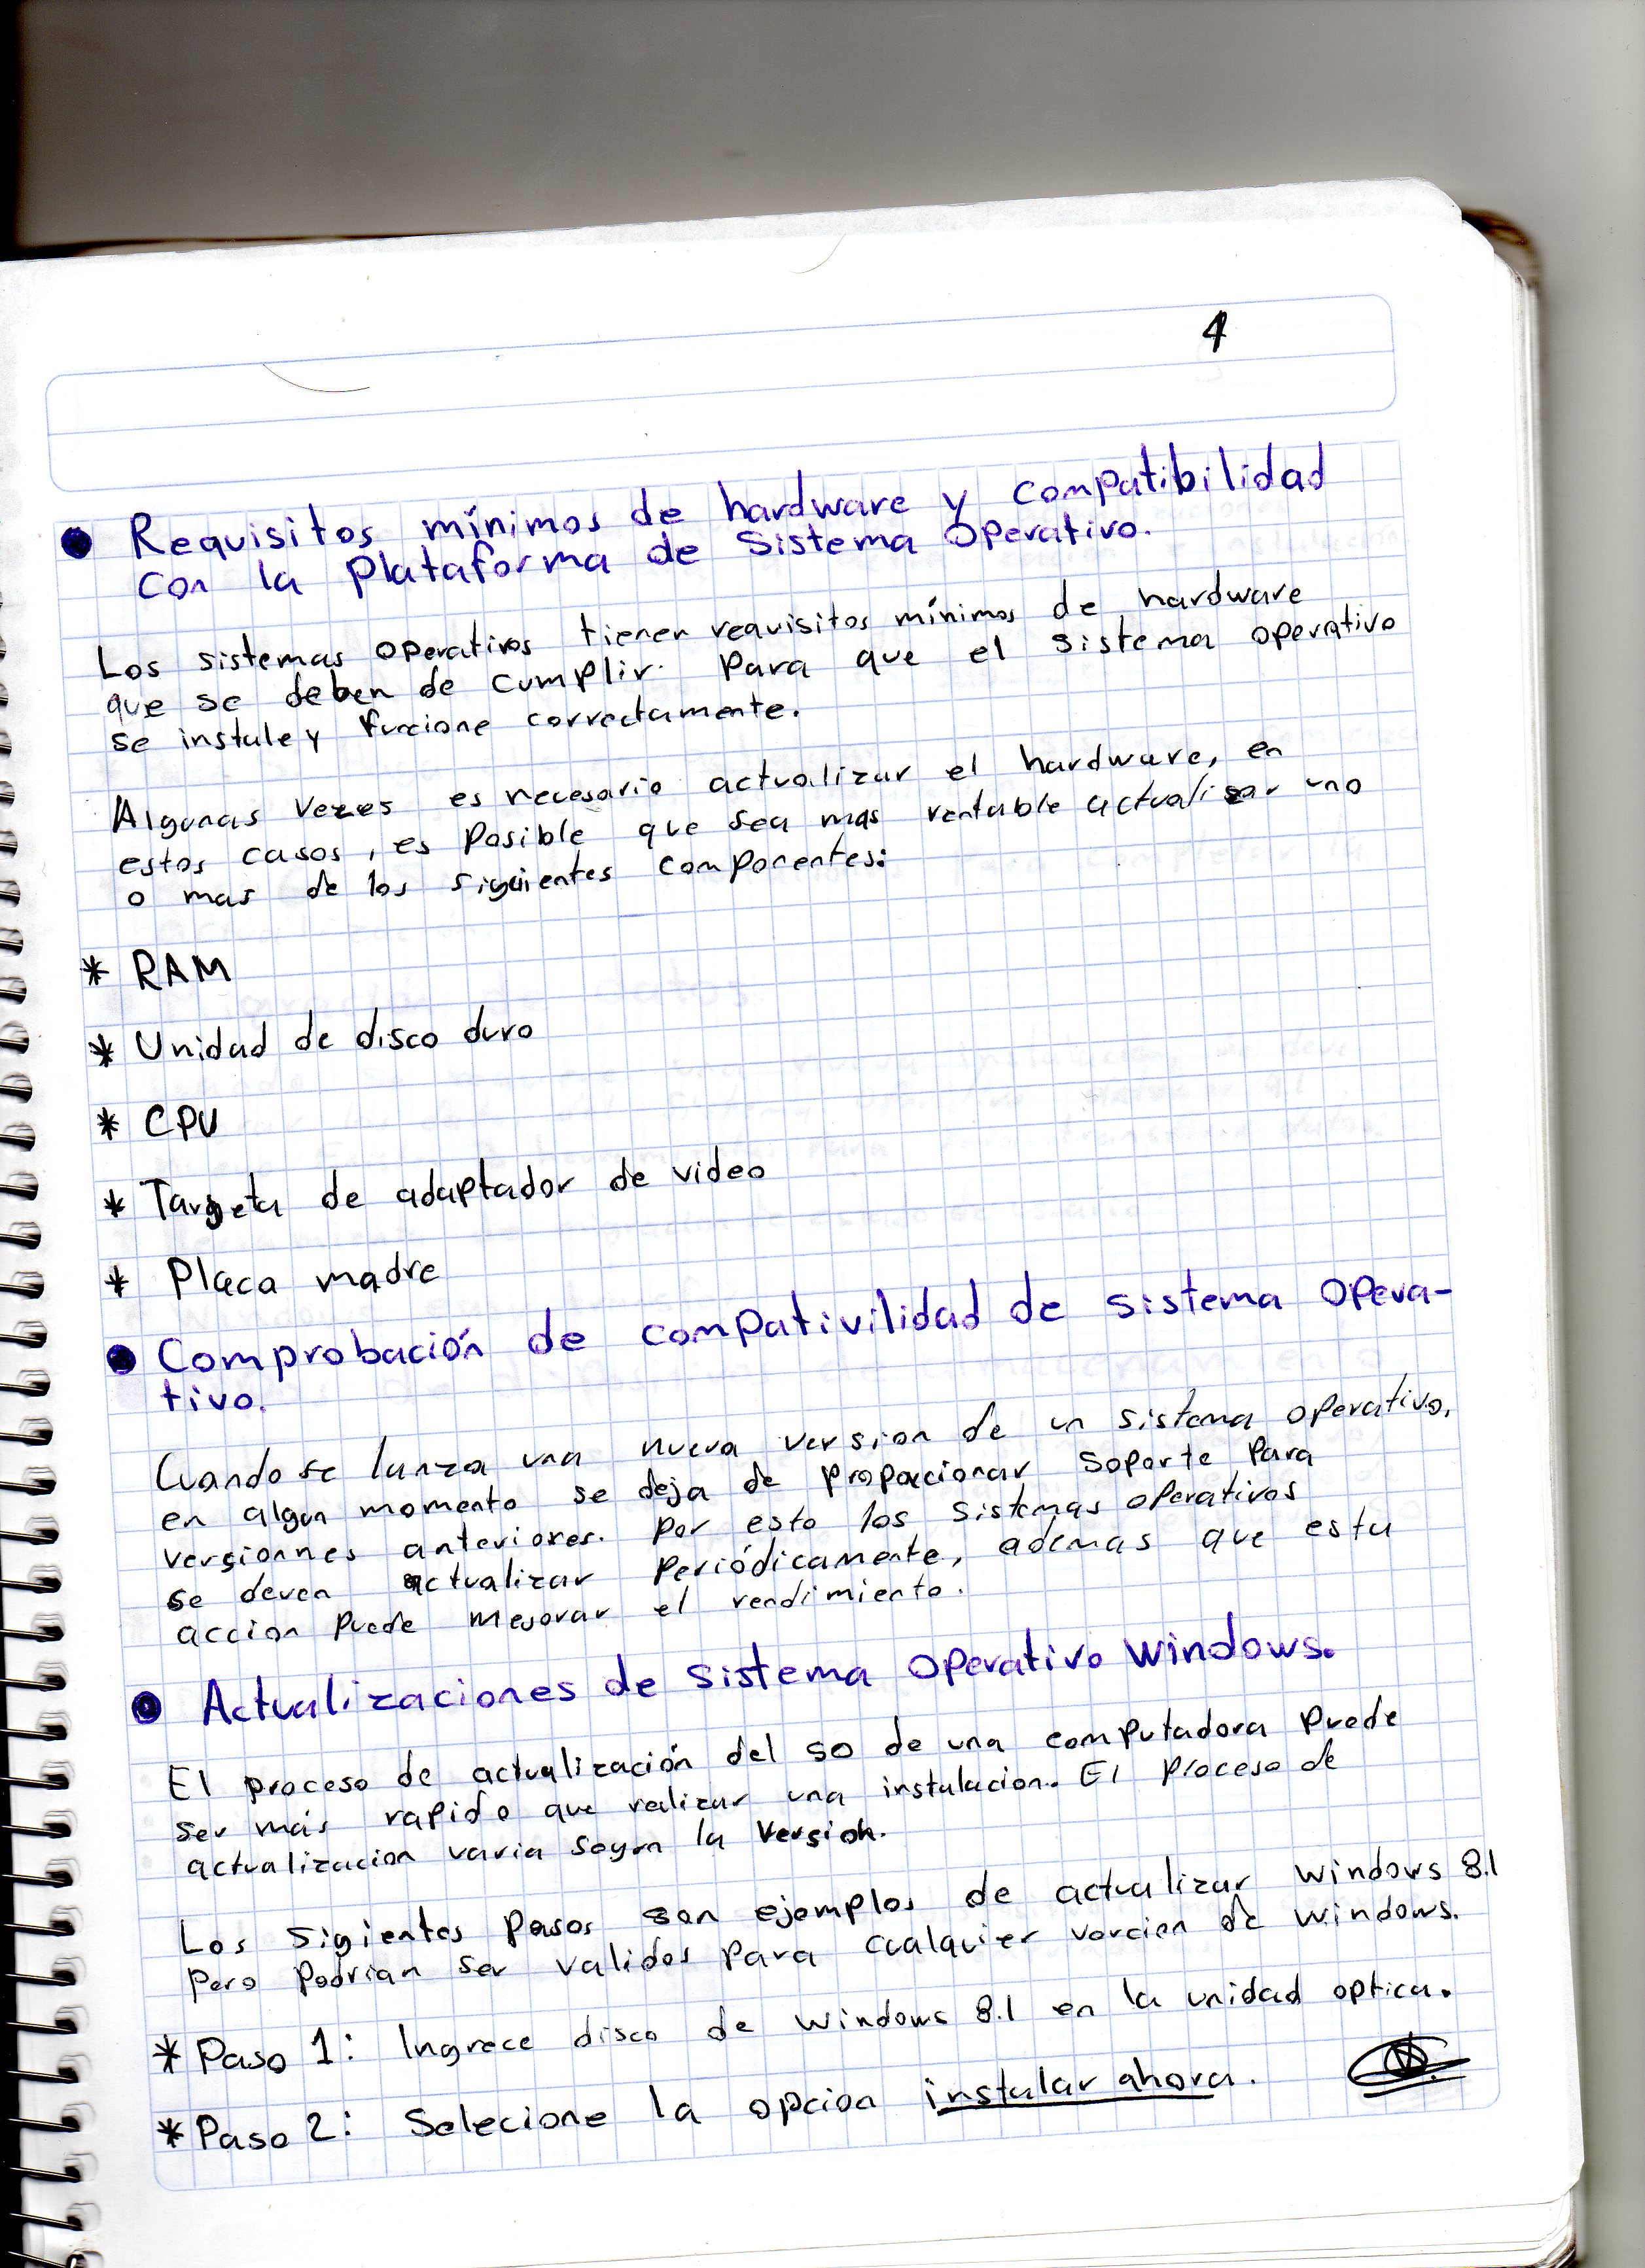 4
● Requisitos mínimos de hardware y compatibilidad
con la Plataforma de Sistema Operativo.
Los sistemas operativos tienen requisitos mínimos de hardware
que se deben de cumplir. Para que el sistema operativo
se instale y funcione correctamente.
Algunas vezes es necesario actualizar el hardware, en
estos casos, es posible que sea mas rentable actualisar uno
o mas de los siguientes componentes:
* RAM
* Unidad de disco duro
* CPU
* Targeta de adaptador de video
* Placa madre
● Comprobación de compativilidad de sistema opera-
tivo.
Cuando se lanza una nueva version de un sistema operativo,
en algun momento se deja de proporcionar soporte para
versionnes anteriores. Por esto los sistemas operativos
se deven actualizar periódicamente, ademas que esta
accion puede mejorar el rendimiento.
● Actualizaciones de sistema operativo windows.
El proceso de actualización del so de una computadora puede
ser más rapido que realizar una instalacion. El proceso de
actualizacion varia segun la version.
Los sigientes pasos son ejemplos de actualizar windows 8.1
pero podrian ser validos para cualquier vercion de windows.
* Paso 1: Ingrece disco de windows 8.1 en la unidad optica.
* Paso 2: Selecione la opcion instalar ahora.